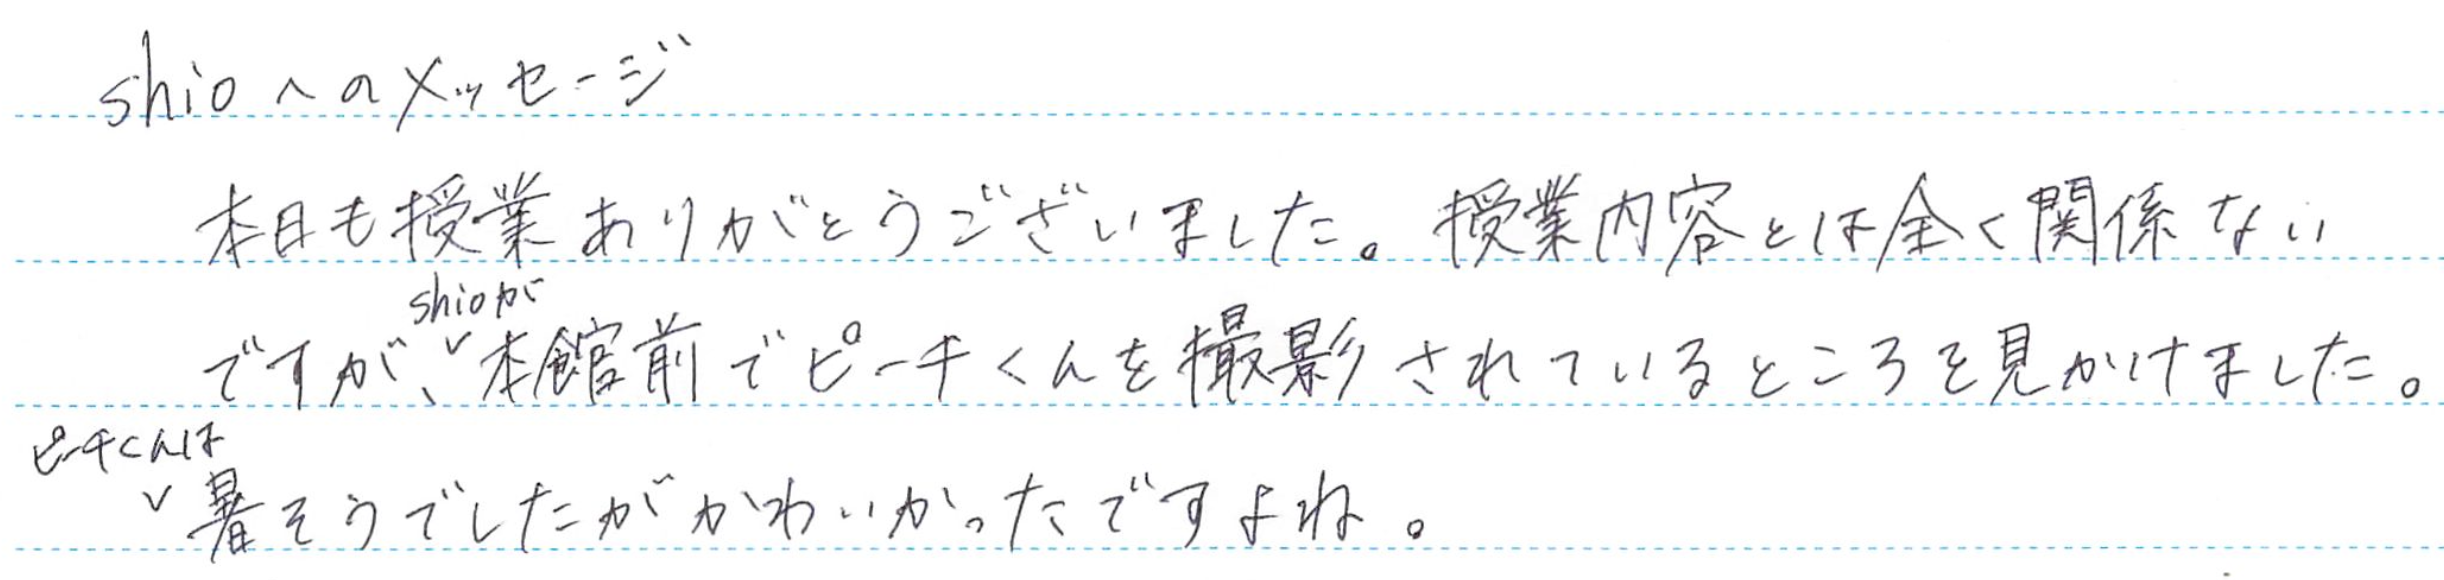 shioへのメッセージ
本日も授業ありがとうございました。授業内容とは全く関係ない
shioが
ですが、本館前でピーチくんを撮影されているところを見かけました。
ピーチくんは
暑そうでしたがかわいかったですよね。